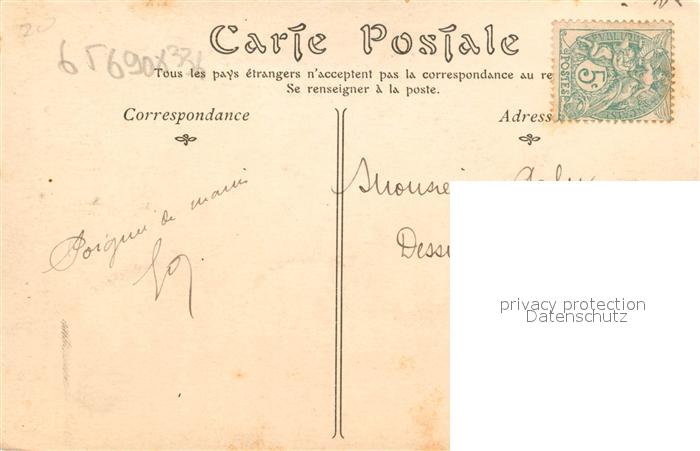 20
65690x336
Carte Postale
Tous les pays étrangers n'acceptent pas la correspondance au re
Se renseigner à la poste.
POSTES
5c
Correspondance
Adress
Poignée de main
Monsie
Dess
privacy protection
Datenschutz